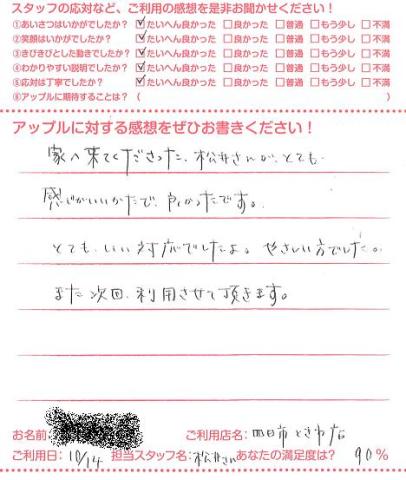 スタッフの応対など、ご利用の感想を是非お聞かせください！
①あいさつはいかがでしたか？ ☑たいへん良かった □良かった □普通 □もう少し □不満
②笑顔はいかがでしたか？ ☑たいへん良かった □良かった □普通 □もう少し □不満
③きびきびとした動きでしたか？ ☑たいへん良かった □良かった □普通 □もう少し □不満
④わかりやすい説明でしたか？ ☑たいへん良かった □良かった □普通 □もう少し □不満
⑤応対は丁寧でしたか？ ☑たいへん良かった □良かった □普通 □もう少し □不満
⑥アップルに期待することは？（ ）
アップルに対する感想をぜひお書きください！
家へ来てくださった、松井さんが、とても
感じがいいかたで、良かったです。
とても、いい対応でしたよ。やさしい方でした。
また次回、利用させて頂きます。
お名前 ご利用店名：四日市ときわ店
ご利用日：10/14 担当スタッフ名：松井さん あなたの満足度は？ 90％